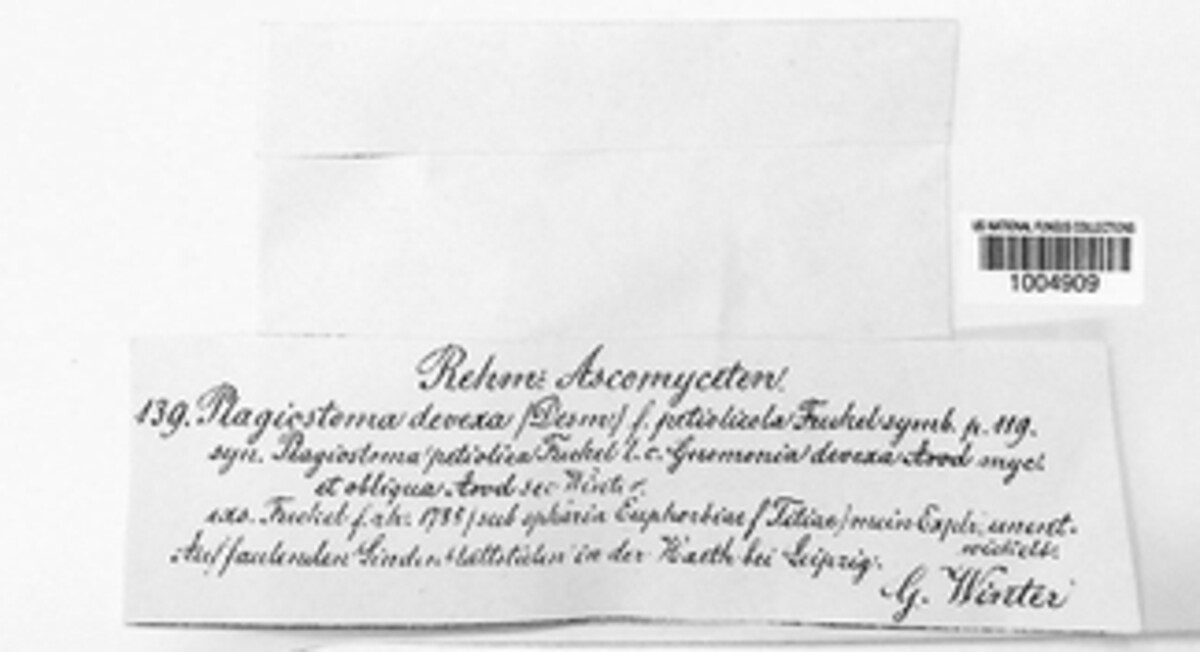 US NATIONAL FUNGUS COLLECTIONS
1004909
Rehm: Ascomyceten.
139. Plagiostoma devexa (Desm) f. petiolicola Fuckel symb. p. 119.
syn. Plagiostoma petiolica Fuckel l. c. Gnomonia devexa Awd myc.
et obliqua Awd sec Winter.
exs. Fuckel f. rh. 1785 (sub sphäria Euphorbiae f Tiliae) mein Expl. unent-
wickelt.
Auf faulenden Lindenblattstielen in der Harth bei Leipzig.
G. Winter